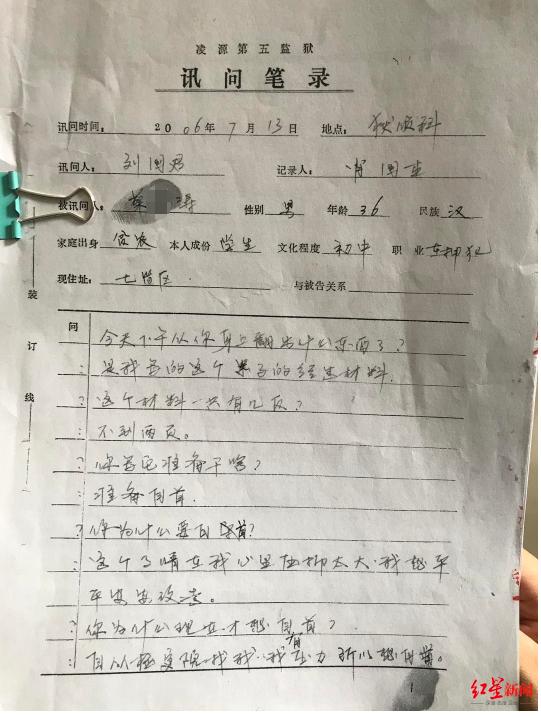 凌源第五监狱
讯问笔录
讯问时间： 2006年7月13日 地点： 狱侦科
讯问人： 刘国君 记录人： 国
被讯问人： 涛 性别 男 年龄 36 民族 汉
家庭出身 贫农 本人成份 学生 文化程度 初中 职业 在押犯
现住址： 七监区 与被告关系
装
订
线
问 今天下午从你身上翻出什么东西了？
是我写的这个案子的经过材料.
？ 这个材料一共有几页？
： 不到两页。
？ 你写它准备干啥？
： 准备自首.
？ 你为什么要自首？
： 这个事情在我心里压抑太大.我想平
平安安改造。
？ 你为什么现在才想自首？
： 自从 找我.我有压力所以想自首。
1
红星新闻